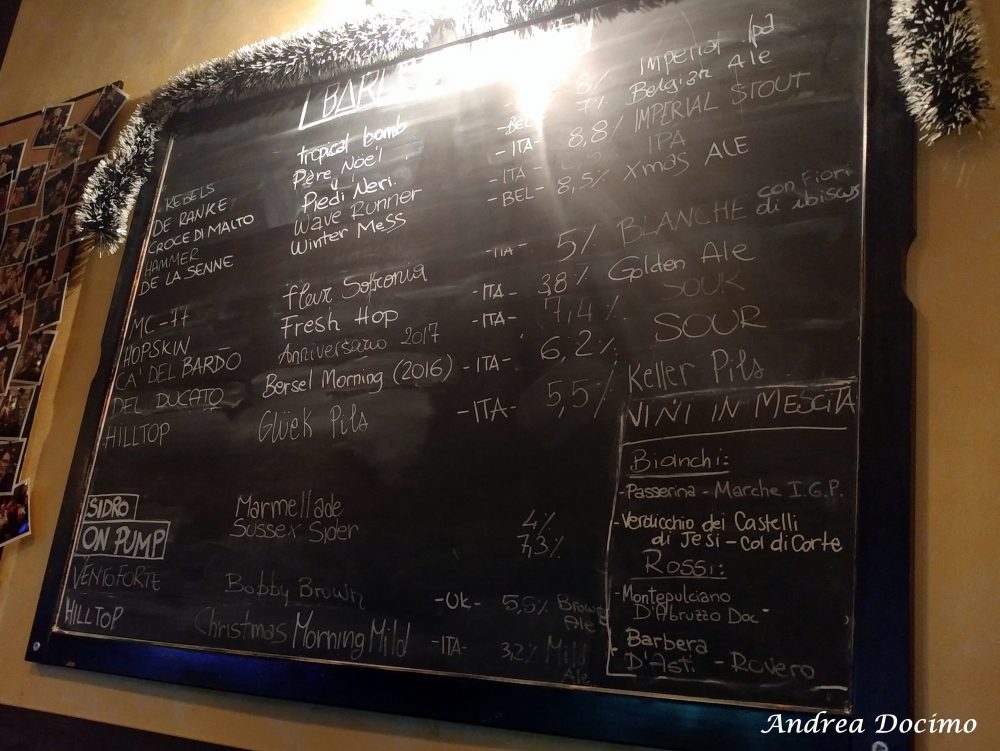 tropical bomb Imperial Ipa
KEBELS Père Noël - BEL - 7% Belgian Ale
DE RANKE Piedi Neri. - ITA - 8,8% IMPERIAL STOUT
CROCE DI MALTO Wave Runner - ITA - IPA
HAMMER Winter Mess - BEL - 8,5% Xmas ALE
DE LA SENNE
MC-77 Fleur Sofronia - ITA - 5% BLANCHE con Fiori di ibiscus
HOPSKIN Fresh Hop - ITA - 3,8% Golden Ale
CA' DEL BARDO Anniversario 2017 - ITA - 7,4% SOUR
DEL DUCATO Bersel Morning (2016) - ITA - 6,2% SOUR
HILLTOP Glüek Pils - ITA - 5,5% Keller Pils
SIDRO Marmellade 4%
Sussex Sider 7,3%
ON PUMP
VENTOFORTE Bobby Brown - UK - Brown Ale
HILLTOP Christmas Morning Mild - ITA - 3,2% Mild Ale
VINI IN MESCITA
Bianchi:
- Passerina - Marche I.G.P.
- Verdicchio dei Castelli
di Jesi - Col di Corte
Rossi:
- Montepulciano
D'Abruzzo Doc
- Barbera
D'Asti - Rovero
Andrea Docimo